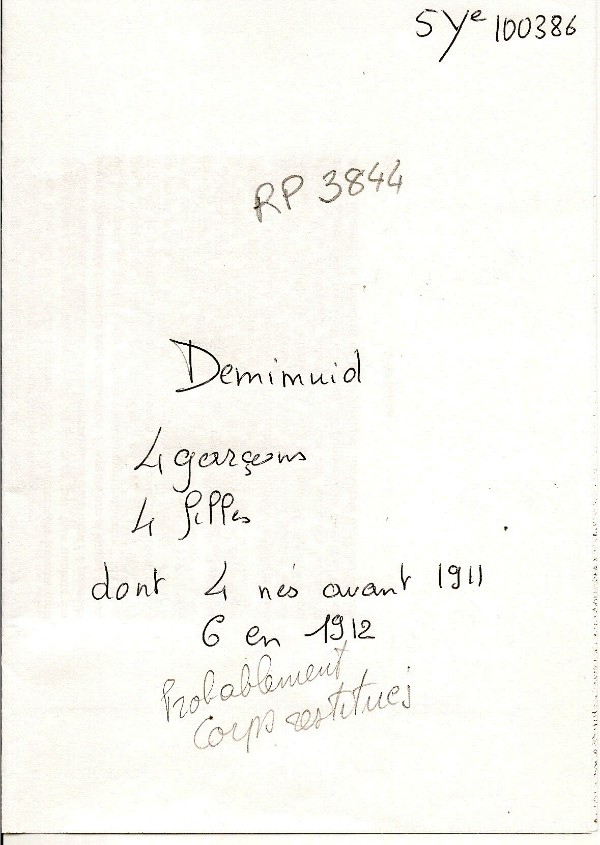 5 Ye 100386
RP 3844
Demimuid
4 garçons
4 filles
dont 4 nés avant 1911
6 en 1912
Probablement
Corps restitués